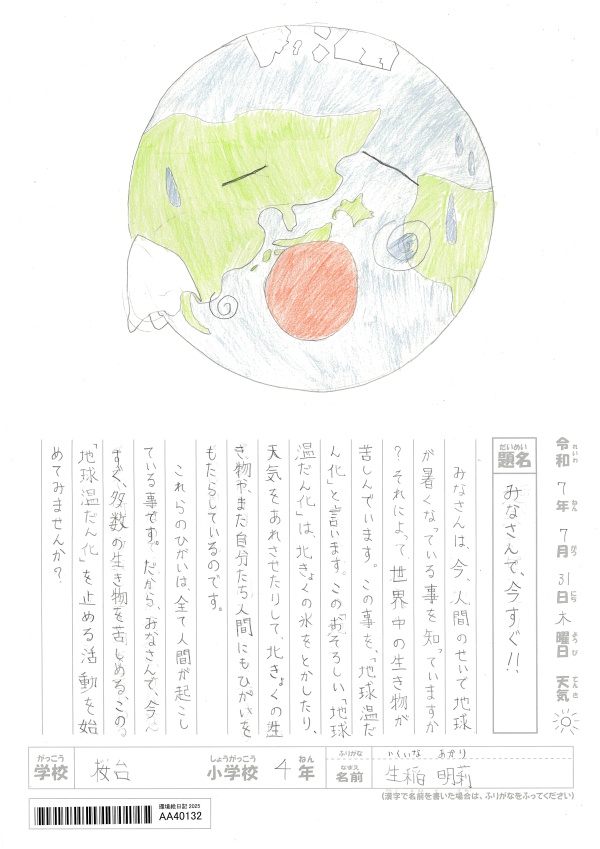 令和7年7月31日木曜日 天気
れいわ ねん がつ にち ようび てんき
だいめい
題名
みなさんで、今すぐ!!
みなさんは、今、人間のせいで地球
が暑くなっている事を知っていますか
?それによって世界中の生き物が
苦しんでいます。この事を、「地球温だ
ん化」と言います。この「おそろしい「地球
温だん化」は、北きょくの氷をとかしたり、
天気をあれさせたりして、北きょくの生
き物や、また自分たち人間にもひがいを
もたらしているのです。
これらのひがいは、全て人間が起こし
ている事です。だから、みなさんで、今
すぐ、多数の生き物を苦しめる、この
「地球温だん化」を止める活動を始
めてみませんか?
がっこう
学校
桜台
しょうがっこう
小学校
4
ねん
年
ふりがな
いくいな あかり
なまえ
名前
生稲 明莉
(漢字で名前を書いた場合は、ふりがなをふってください)
環境絵日記 2025
AA40132